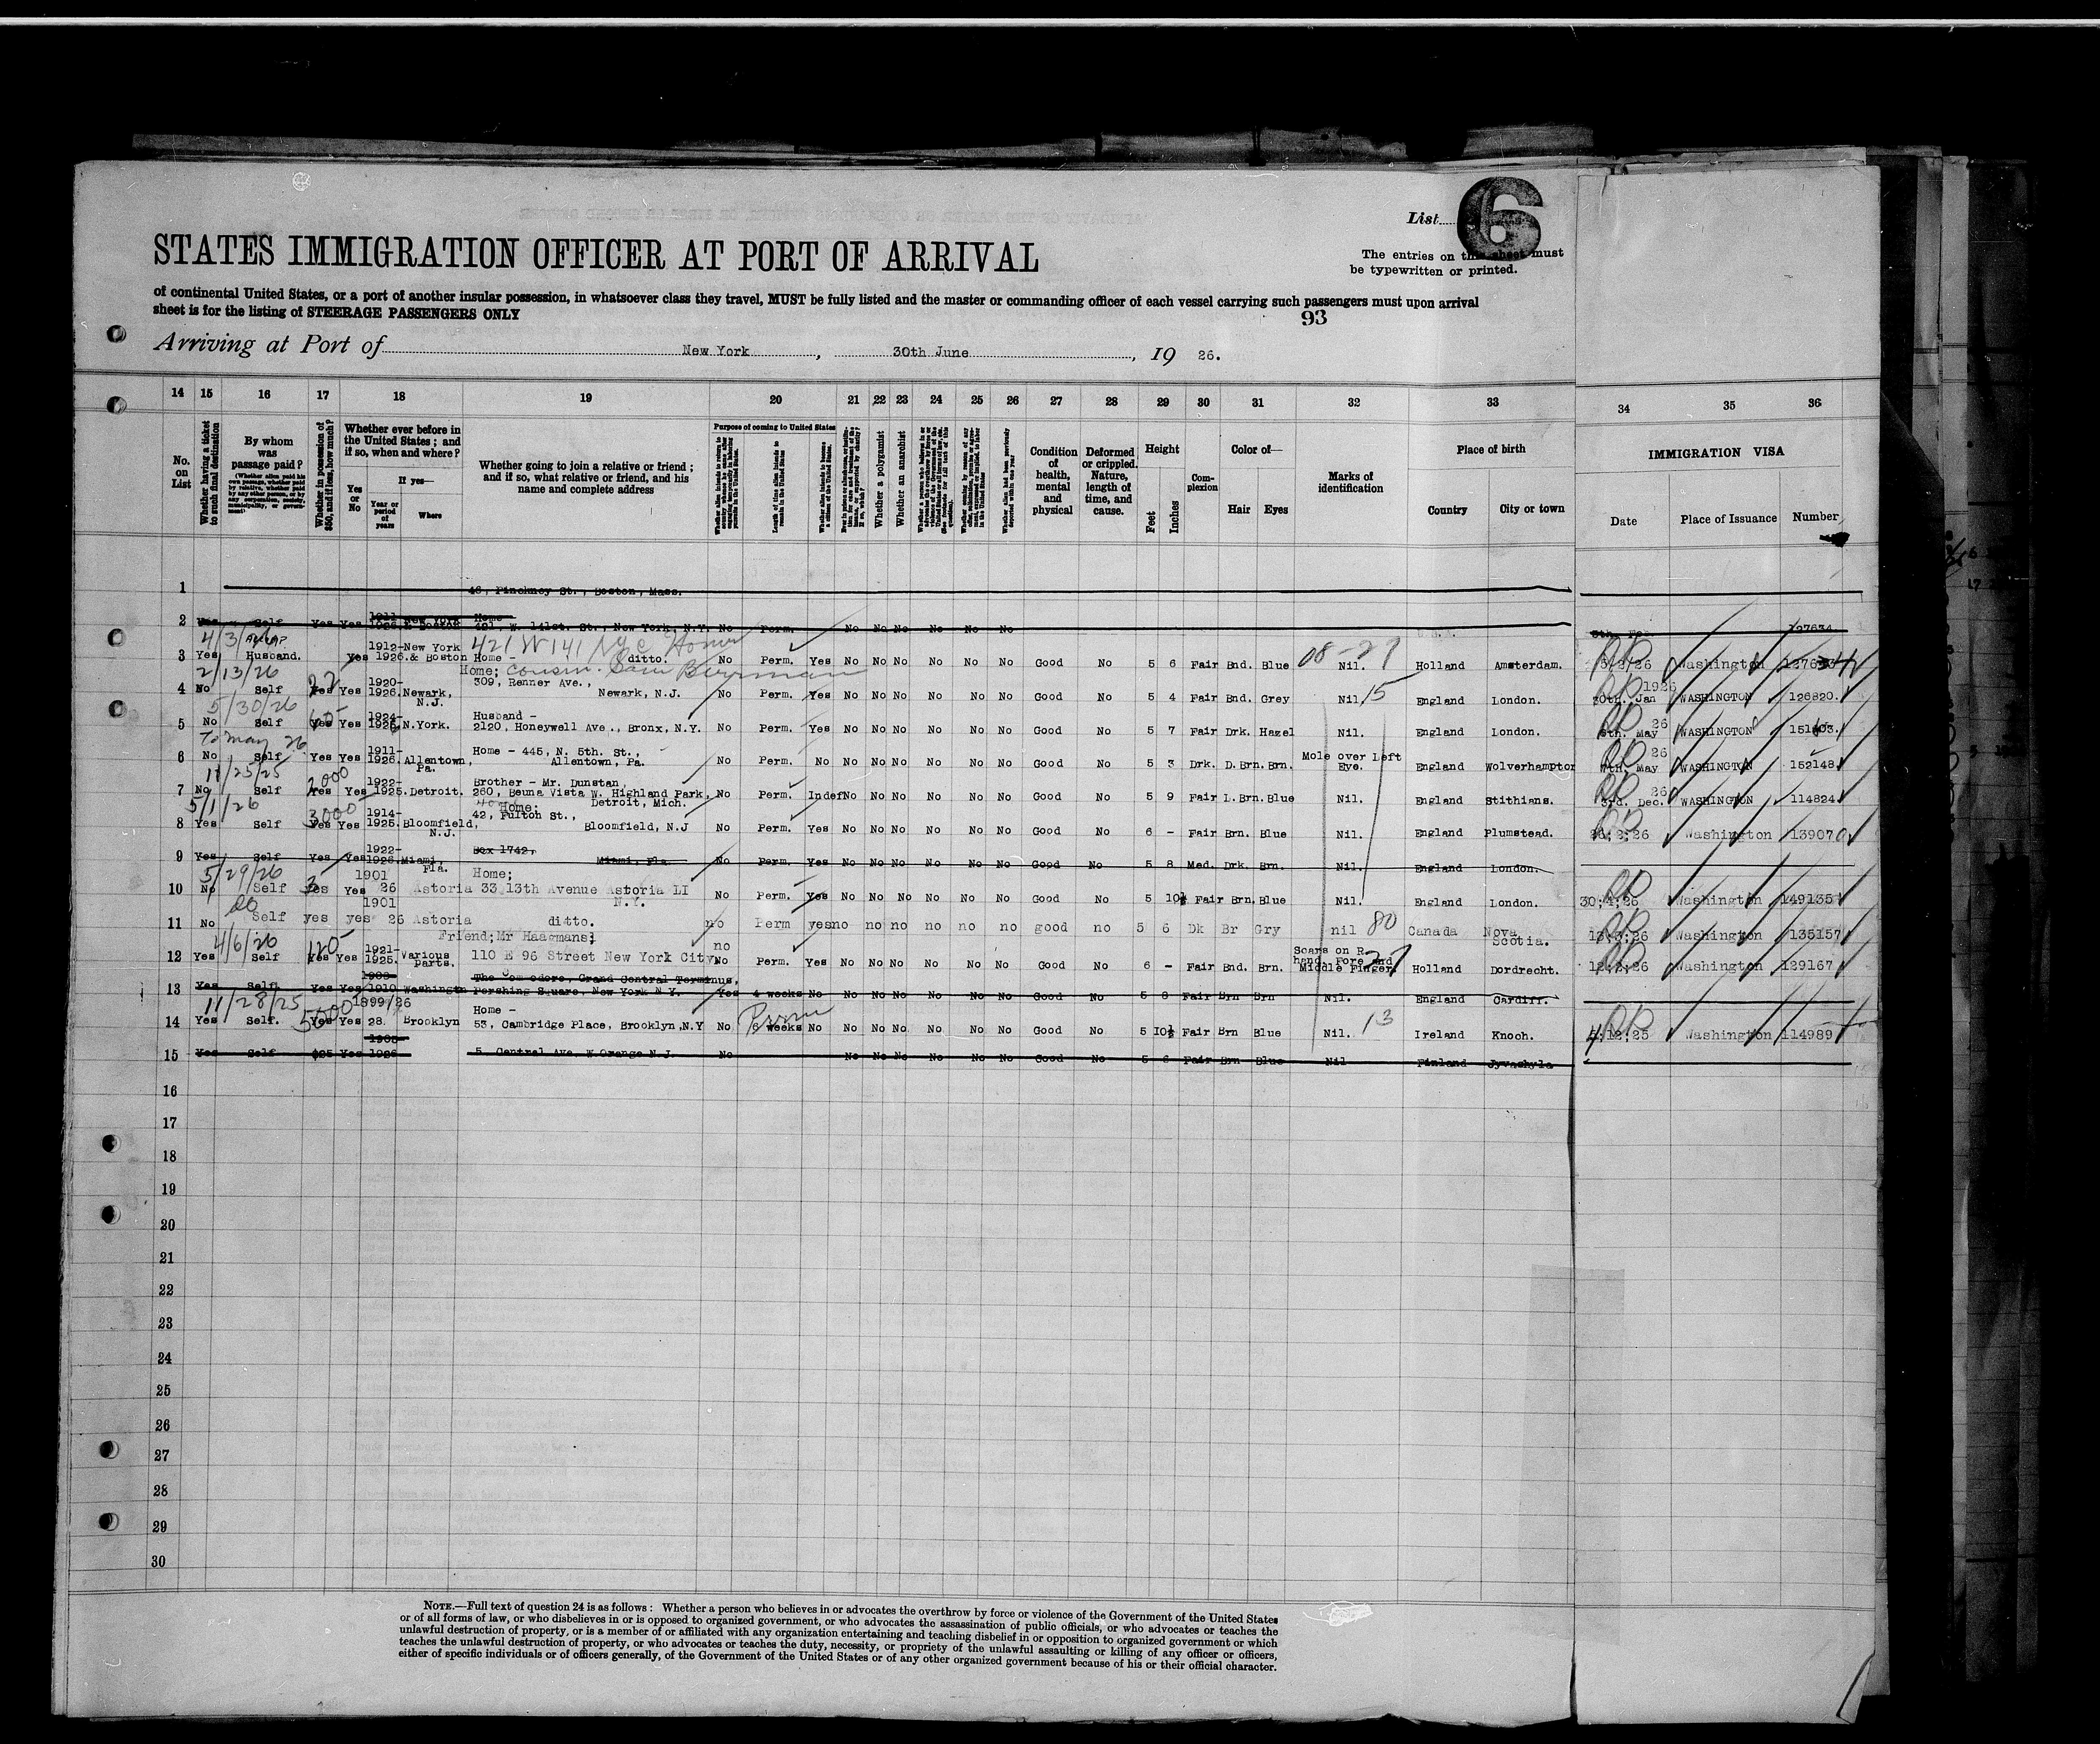 List 6
STATES IMMIGRATION OFFICER AT PORT OF ARRIVAL
The entries on this sheet must
be typewritten or printed.
of continental United States, or a port of another insular possession, in whatsoever class they travel, MUST be fully listed and the master or commanding officer of each vessel carrying such passengers must upon arrival
sheet is for the listing of STEERAGE PASSENGERS ONLY
93
Arriving at Port of New York, 30th June, 19 26.
14 15 16 17 18 19 20 21 22 23 24 25 26 27 28 29 30 31 32 33 34 35 36
No. on List
Whether having a ticket to such final destination
By whom was passage paid?
(Whether alien paid his own passage, whether paid by relative, whether paid by any other person, or by any corporation, society, municipality, or government)
Whether in possession of $50, and if less, how much?
Whether ever before in the United States; and if so, when and where?
Yes or No
If yes—
Year or period of years
Where
Whether going to join a relative or friend; and if so, what relative or friend, and his name and complete address
Purpose of coming to United States
Length of time alien intends to remain in the United States
Whether alien intends to become a citizen of the United States
Whether a polygamist
Whether an anarchist
Condition of health, mental and physical
Deformed or crippled. Nature, length of time, and cause.
Height
Feet Inches
Complexion
Color of—
Hair Eyes
Marks of identification
Place of birth
Country City or town
IMMIGRATION VISA
Date Place of Issuance Number
1 46, Pinckney St., Boston, Mass.
1911- New York Home
2 Yes Self Yes Yes 1926 & Boston 421, W. 141st. St., New York, N.Y. No Perm. No No No No No No 5th. Feb. 127634
4/3/26 1912- New York 421 W 141 NYC Home
3 Yes Husband. Yes 1926. & Boston Home - ditto. No Perm. Yes No No No No No No Good No 5 6 Fair Bnd. Blue 08-27 Nil. Holland Amsterdam. 5/2/26 Washington
2/13/26 22 Home; cousin. Sam Burman
1920- 309, Renner Ave.,
4 No Self Yes Yes 1926. Newark, N.J. Newark, N.J. No Perm. Yes No No No No No No Good No 5 4 Fair Bnd. Grey Nil. 15 England London. 20th. Jan 1926 WASHINGTON 126820.
5/30/26 60 1924- Husband -
5 No Self Yes Yes 1926 N.York. 2120, Honeywell Ave., Bronx, N.Y. No Perm. Yes No No No No No No Good No 5 7 Fair Drk. Hazel Nil. England London. May 26 WASHINGTON
To May 26 1911- Home - 445, N. 5th. St.,
6 No Self Yes Yes 1926. Allentown, Pa. Allentown, Pa. No Perm. No No No No No No No Good No 5 3 Drk. D.Brn. Brn. Mole over Left Eye. England Wolverhampton 7th. May 26 WASHINGTON 152148.
11/25/25 2000 1922- Brother - Mr. Dunstan,
7 No Self Yes Yes 1925. Detroit. 260, Beuna Vista W. Highland Park, Detroit, Mich. No Perm. Indef No No No No No No Good No 5 9 Fair L.Brn. Blue Nil. England Stithians. 3rd. Dec. 26 WASHINGTON 114824
5/1/26 3000 1914- Home;
42, Fulton St.,
8 Yes Self Yes Yes 1925. Bloomfield, N.J. Bloomfield, N.J No Perm. Yes No No No No No No Good No 6 - Fair Brn. Blue Nil. England Plumstead. 26;2;26 Washington 139070
1922- Box 1742,
9 Yes Self Yes Yes 1926. Miami, Fla. Miami, Fla. No Perm. Yes No No No No No No Good No 5 8 Med. Drk. Brn. Nil. England London.
5/29/26 1901 Home;
10 No Self Yes Yes 26 Astoria 33 13th Avenue Astoria LI N.Y. No Perm. Yes No No No No No No Good No 5 10½ Fair Brn. Blue Nil. England London. 30;4;26 Washington 149135
do 1901
11 No Self yes yes 26 Astoria ditto. no Perm yes no no no no no no good no 5 6 Dk Br Gry nil 80 Canada Nova Scotia. Washington 135157
4/6/26 120 1921- Friend;Mr Haagmans;
12 Yes Self Yes Yes 1925. Various parts. 110 E 96 Street New York City no No Perm. Yes No No No No No No Good No 6 - Fair Bnd. Brn. Scars on R. hand, Fore and Middle Finger. 27 Holland Dordrecht. 12;2;26 Washington 129167
1908- The Commodore, Grand Central Terminus,
13 Yes Self Yes Yes 1910 Washington Pershing Square, New York N.Y. Yes 4 weeks No No No No No No No Good No 5 8 Fair Brn Brn Nil. England Cardiff.
11/28/25 5000 1899/26 Home - Perm
14 Yes Self. Yes Yes 28. Brooklyn 53, Cambridge Place, Brooklyn,N.Y No 6 weeks No No No No No No No Good No 5 10½ Fair Brn Blue Nil. 13 Ireland Knoch. 4;12;25 Washington 114989
1905-
15 Yes Self $25 Yes 1926 5, Central Ave. W.Orange N.J. No No No No No No No Good No 5 6 Fair Brn Blue Nil Finland Jyvaskyla
16
17
18
19
20
21
22
23
24
25
26
27
28
29
30
NOTE.—Full text of question 24 is as follows: Whether a person who believes in or advocates the overthrow by force or violence of the Government of the United States
or of all forms of law, or who disbelieves in or is opposed to organized government, or who advocates the assassination of public officials, or who advocates or teaches the
unlawful destruction of property, or is a member of or affiliated with any organization entertaining and teaching disbelief in or opposition to organized government or which
teaches the unlawful destruction of property, or who advocates or teaches the duty, necessity, or propriety of the unlawful assaulting or killing of any officer or officers,
either of specific individuals or of officers generally, of the Government of the United States or of any other organized government because of his or their official character.